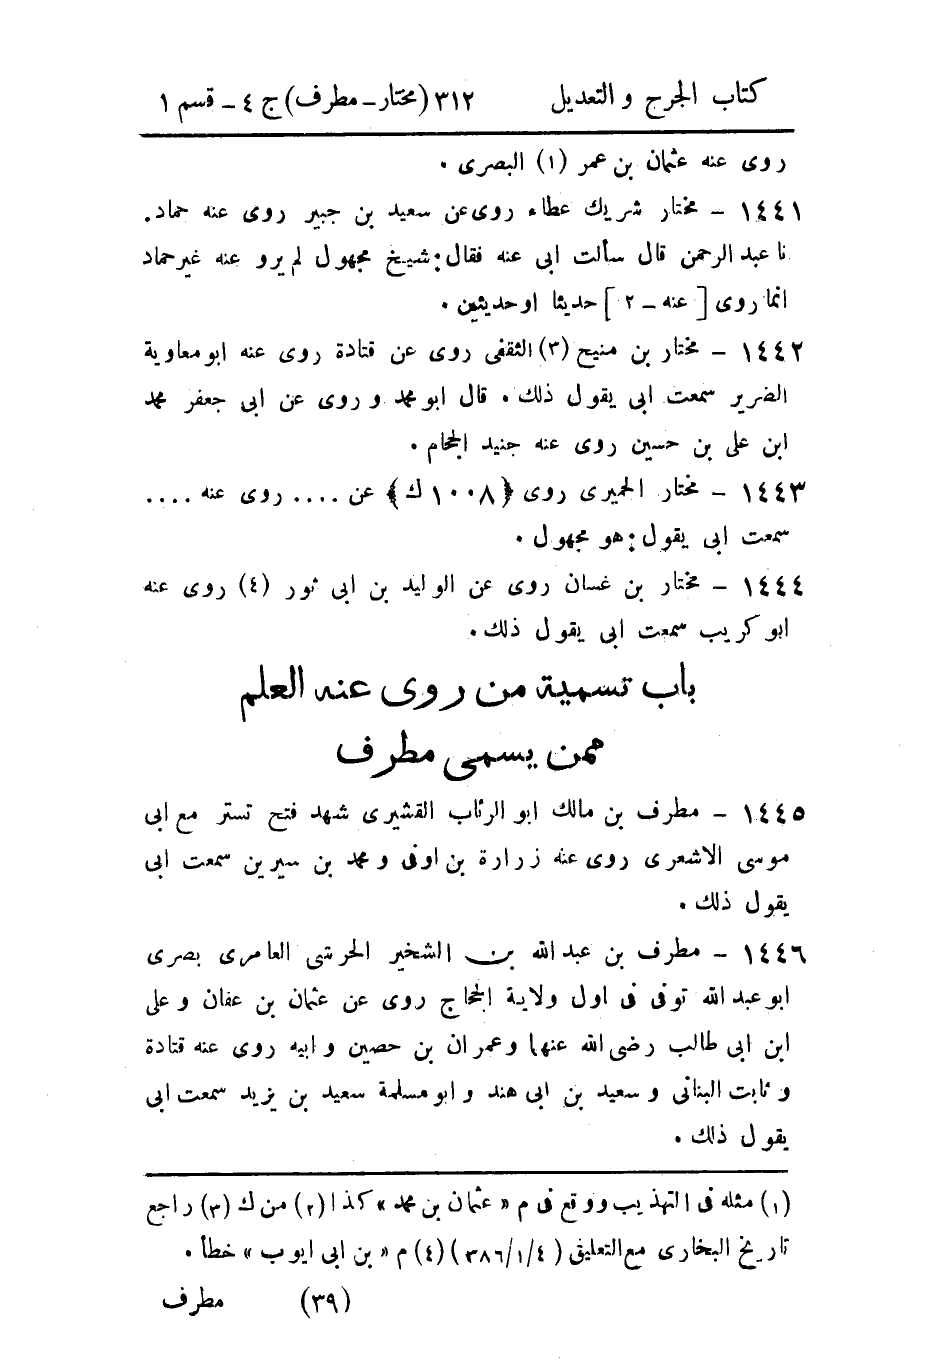 كتاب الجرح و التعديل ٣١٢ (مختار - مطرف) ج ٤ - قسم ١
روى عنه عثمان بن عمر (١) البصرى .
١٤٤١ - مختار شريك عطاء روى عن سعيد بن جبير روى عنه حماد.
نا عبد الرحمن قال سألت ابى عنه فقال: شيخ مجهول لم يرو عنه غير حماد
انما روى [ عنه - ٢ ] حديثا او حديثين .
١٤٤٢ - مختار بن منيح (٣) الثقفى روى عن قتادة روى عنه ابو معاوية
الضرير سمعت ابى يقول ذلك . قال ابو محمد و روى عن ابى جعفر محمد
ابن على بن حسين روى عنه جنيد الحجام .
١٤٤٣ - مختار الحميرى روى ﴿١٠٠٨ ك﴾ عن .... روى عنه ....
سمعت ابى يقول: هو مجهول .
١٤٤٤ - مختار بن غسان روى عن الوليد بن ابى ثور (٤) روى عنه
ابو كريب سمعت ابى يقول ذلك .
باب تسمية من روى عنه العلم
ممن يسمى مطرف
١٤٤٥ - مطرف بن مالك ابو الرئاب القشيرى شهد فتح تستر مع ابى
موسى الاشعرى روى عنه زرارة بن اوفى و محمد بن سيرين سمعت ابى
يقول ذلك .
١٤٤٦ - مطرف بن عبد الله بن الشخير الحرشى العامرى بصرى
ابو عبد الله توفى فى اول ولاية الحجاج روى عن عثمان بن عفان و على
ابن ابى طالب رضى الله عنهما و عمران بن حصين و ابيه روى عنه قتادة
و ثابت البنانى و سعيد بن ابى هند و ابو مسلمة سعيد بن يزيد سمعت ابى
يقول ذلك .
(١) مثله فى التهذيب ووقع فى م « عثمان بن محمد » كذا (٢) من ك (٣) راجع
تاريخ البخارى مع التعليق ( ٤/١/٣٨٦ ) (٤) م « بن ابى ايوب » خطأ .
(٣٩) مطرف